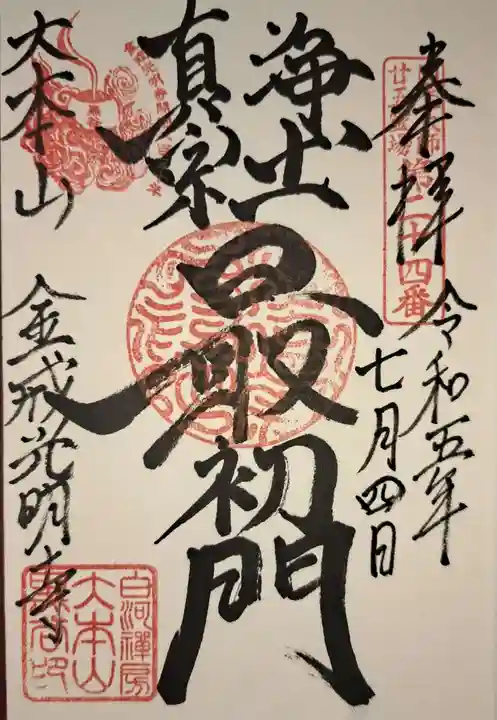 奉拝
令和五年
七月四日
廿五霊場
第二十四番
浄土
真宗
最初門
大本山
金戒光明寺
白河禅房
大本山